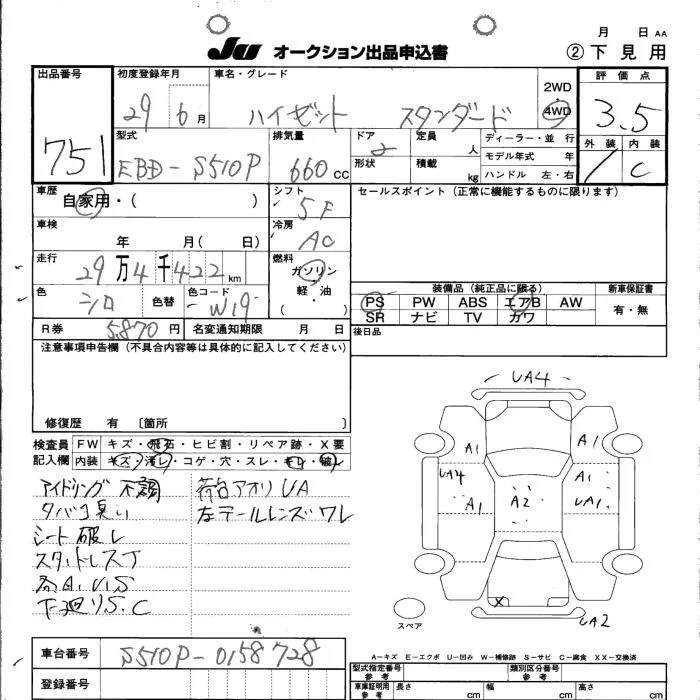 JU オークション出品申込書
月 日 AA
② 下見用
出品番号 751
初度登録年月 29 6 月
車名・グレード ハイゼット スタンダード
2WD
4WD
評価点 3.5
外装 内装 C
型式 EBD-S510P
排気量 660 CC
ドア 2
定員 人
ディーラー・並 行
モデル年式 年
ハンドル 左・右
形状
積載 kg
車歴 自家用・( )
シフト 5F
セールスポイント (正常に機能するものに限ります)
車検 年 月( 日)
冷房 AC
走行 29万4千422 km
燃料 ガソリン 軽・油 ( )
色 シロ
色替
色コード W19
装備品 (純正品に限る)
新車保証書
PS PW ABS エアB AW
有・無
SR ナビ TV カワ
R券 5.870 円
名変通知期限 月 日
後日品
注意事項申告欄 (不具合内容等は具体的に記入してください)
修復歴 有 〔箇所 〕
検査員記入欄
FW キズ・飛石・ヒビ割・リペア跡・X要
内装 キズ・汚レ・コゲ・穴・スレ・キレ・破レ
アイドリング 不調
荷台アオリ UA
タバコ臭い
左テールレンズ ワレ
シート 破レ
スタッドレスT
各A.U.S
下廻りS.C
UA4
A1 A1
UA4 A1
A1 A2 UA1
X
UA2
スペア
A-キズ E-エクボ U-凹み W-補修跡 S-サビ C-腐食 XX-交換済
車台番号 S510P-0158728
登録番号
型式指定番号 参考
類別区分番号 参考
車庫証明用 参考
長さ cm
幅 cm
高さ cm